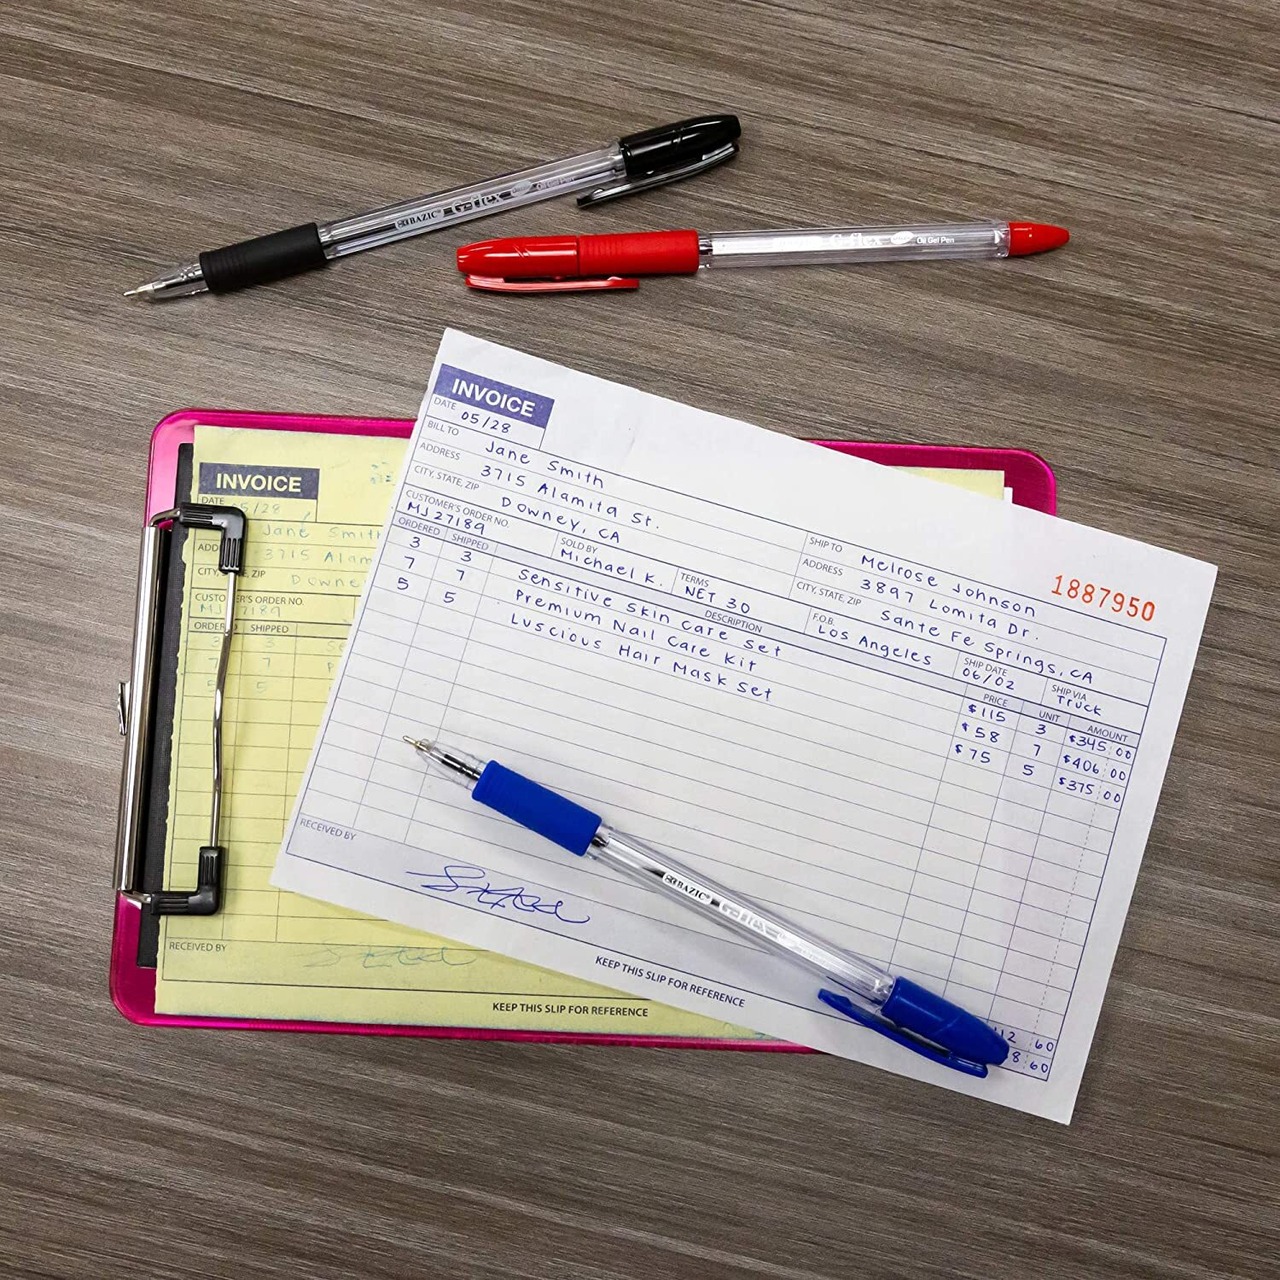 BAZIC G-flex Oil Gel Pen
G-flex Oil Gel Pen
INVOICE
DATE 05/28
BILL TO Jane Smith
ADDRESS 3715 Alamita St.
CITY, STATE, ZIP Downey, CA
SHIP TO Melrose Johnson
ADDRESS 3897 Lomita Dr.
CITY, STATE, ZIP Sante Fe Springs, CA
1887950
CUSTOMER'S ORDER NO. MJ27189
SOLD BY Michael K.
TERMS NET 30
F.O.B. Los Angeles
SHIP DATE 06/02
SHIP VIA Truck
ORDERED SHIPPED DESCRIPTION PRICE UNIT AMOUNT
3 3 Sensitive Skin Care Set $115 3 $345 00
7 7 Premium Nail Care Kit $58 7 $406 00
5 5 Luscious Hair Mask Set $75 5 $375 00
12 60
8 60
RECEIVED BY
KEEP THIS SLIP FOR REFERENCE
BAZIC G-flex
INVOICE
DATE 05/28
Jane Smith
ADD 3715 Alam
CITY, ZIP Downey
CUSTO ORDER NO.
MJ27189
ORDER SHIPPED
3 3
7 7
5 5
RECEIVED BY
KEEP THIS SLIP FOR REFERENCE